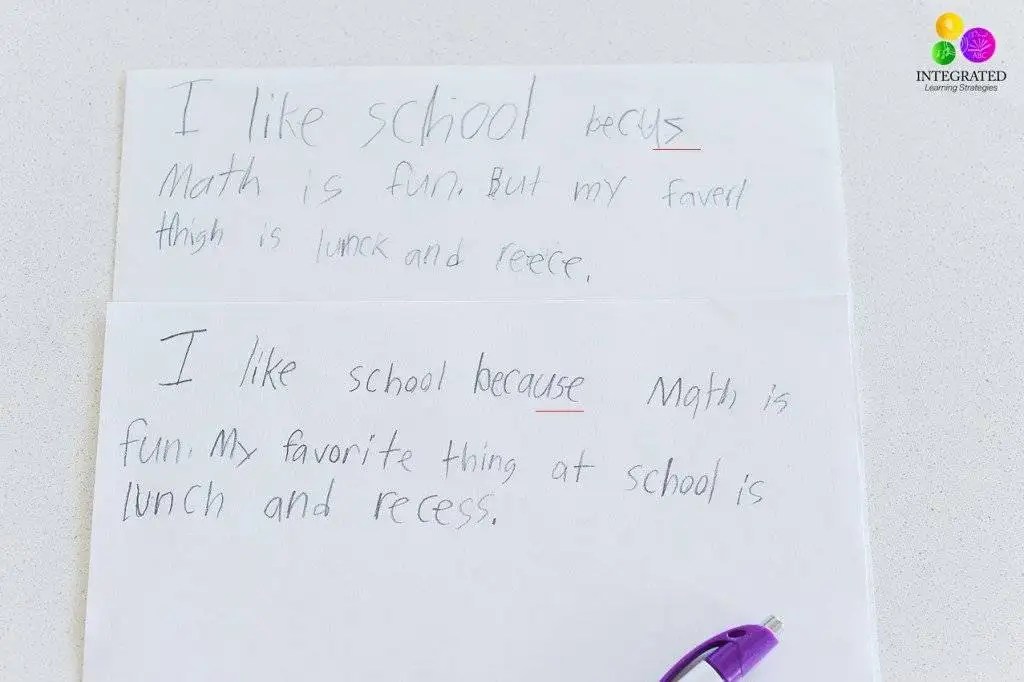 INTEGRATED
Learning Strategies
ABC
I like school becus
Math is fun. But my faverl
thigh is lunck and reece.
I like school because Math is
fun. My favorite thing at school is
lunch and recess.